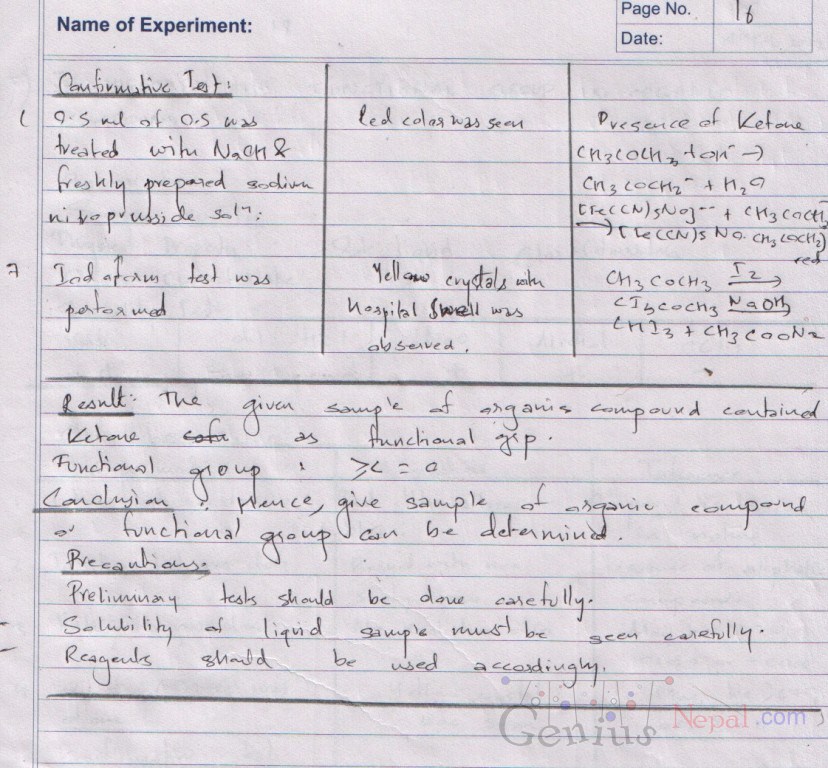 Page No. 16
Name of Experiment:
Date:
Confirmative Test:
0.5 ml of O.S was
treated with NaOH &
freshly prepared sodium
nitroprusside solⁿ:
Red color was seen
Presence of Ketone
CH3COCH3 + OH⁻ →
CH3COCH2⁻ + H2O
[Fe(CN)5NO]⁻⁻ + CH3COCH2⁻
→ [Fe(CN)5 NO. CH3COCH2]
red
7 Iodoform test was
performed
Yellow crystals with
Hospital smell was
observed.
CH3COCH3 I2 →
CI3COCH3 NaOH →
CHI3 + CH3COONa
Result: The given sample of organic compound contained
Ketone as functional grp.
Functional group : >C = O
Conclusion : Hence, give sample of organic compound
or functional group can be determined.
Precautions:
Preliminary tests should be done carefully.
- Solubility of liquid sample must be seen carefully.
- Reagents should be used accordingly.
Genius Nepal.com